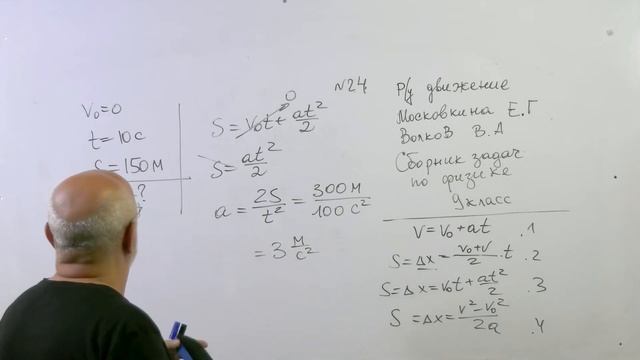 V₀=0
t=10c
S=150м
?
S=V₀t+at²/2
0
S=at²/2
a=2S/t²=300м/100c²
=3 м/c²
№24
Р/у движение
Московкина Е.Г
Волков В.А
Сборник задач
по физике
9класс
V=V₀+at .1
S=Δx=V₀+V/2·t .2
S=Δx=V₀t+at²/2 .3
S=Δx=V²-V₀²/2a .4